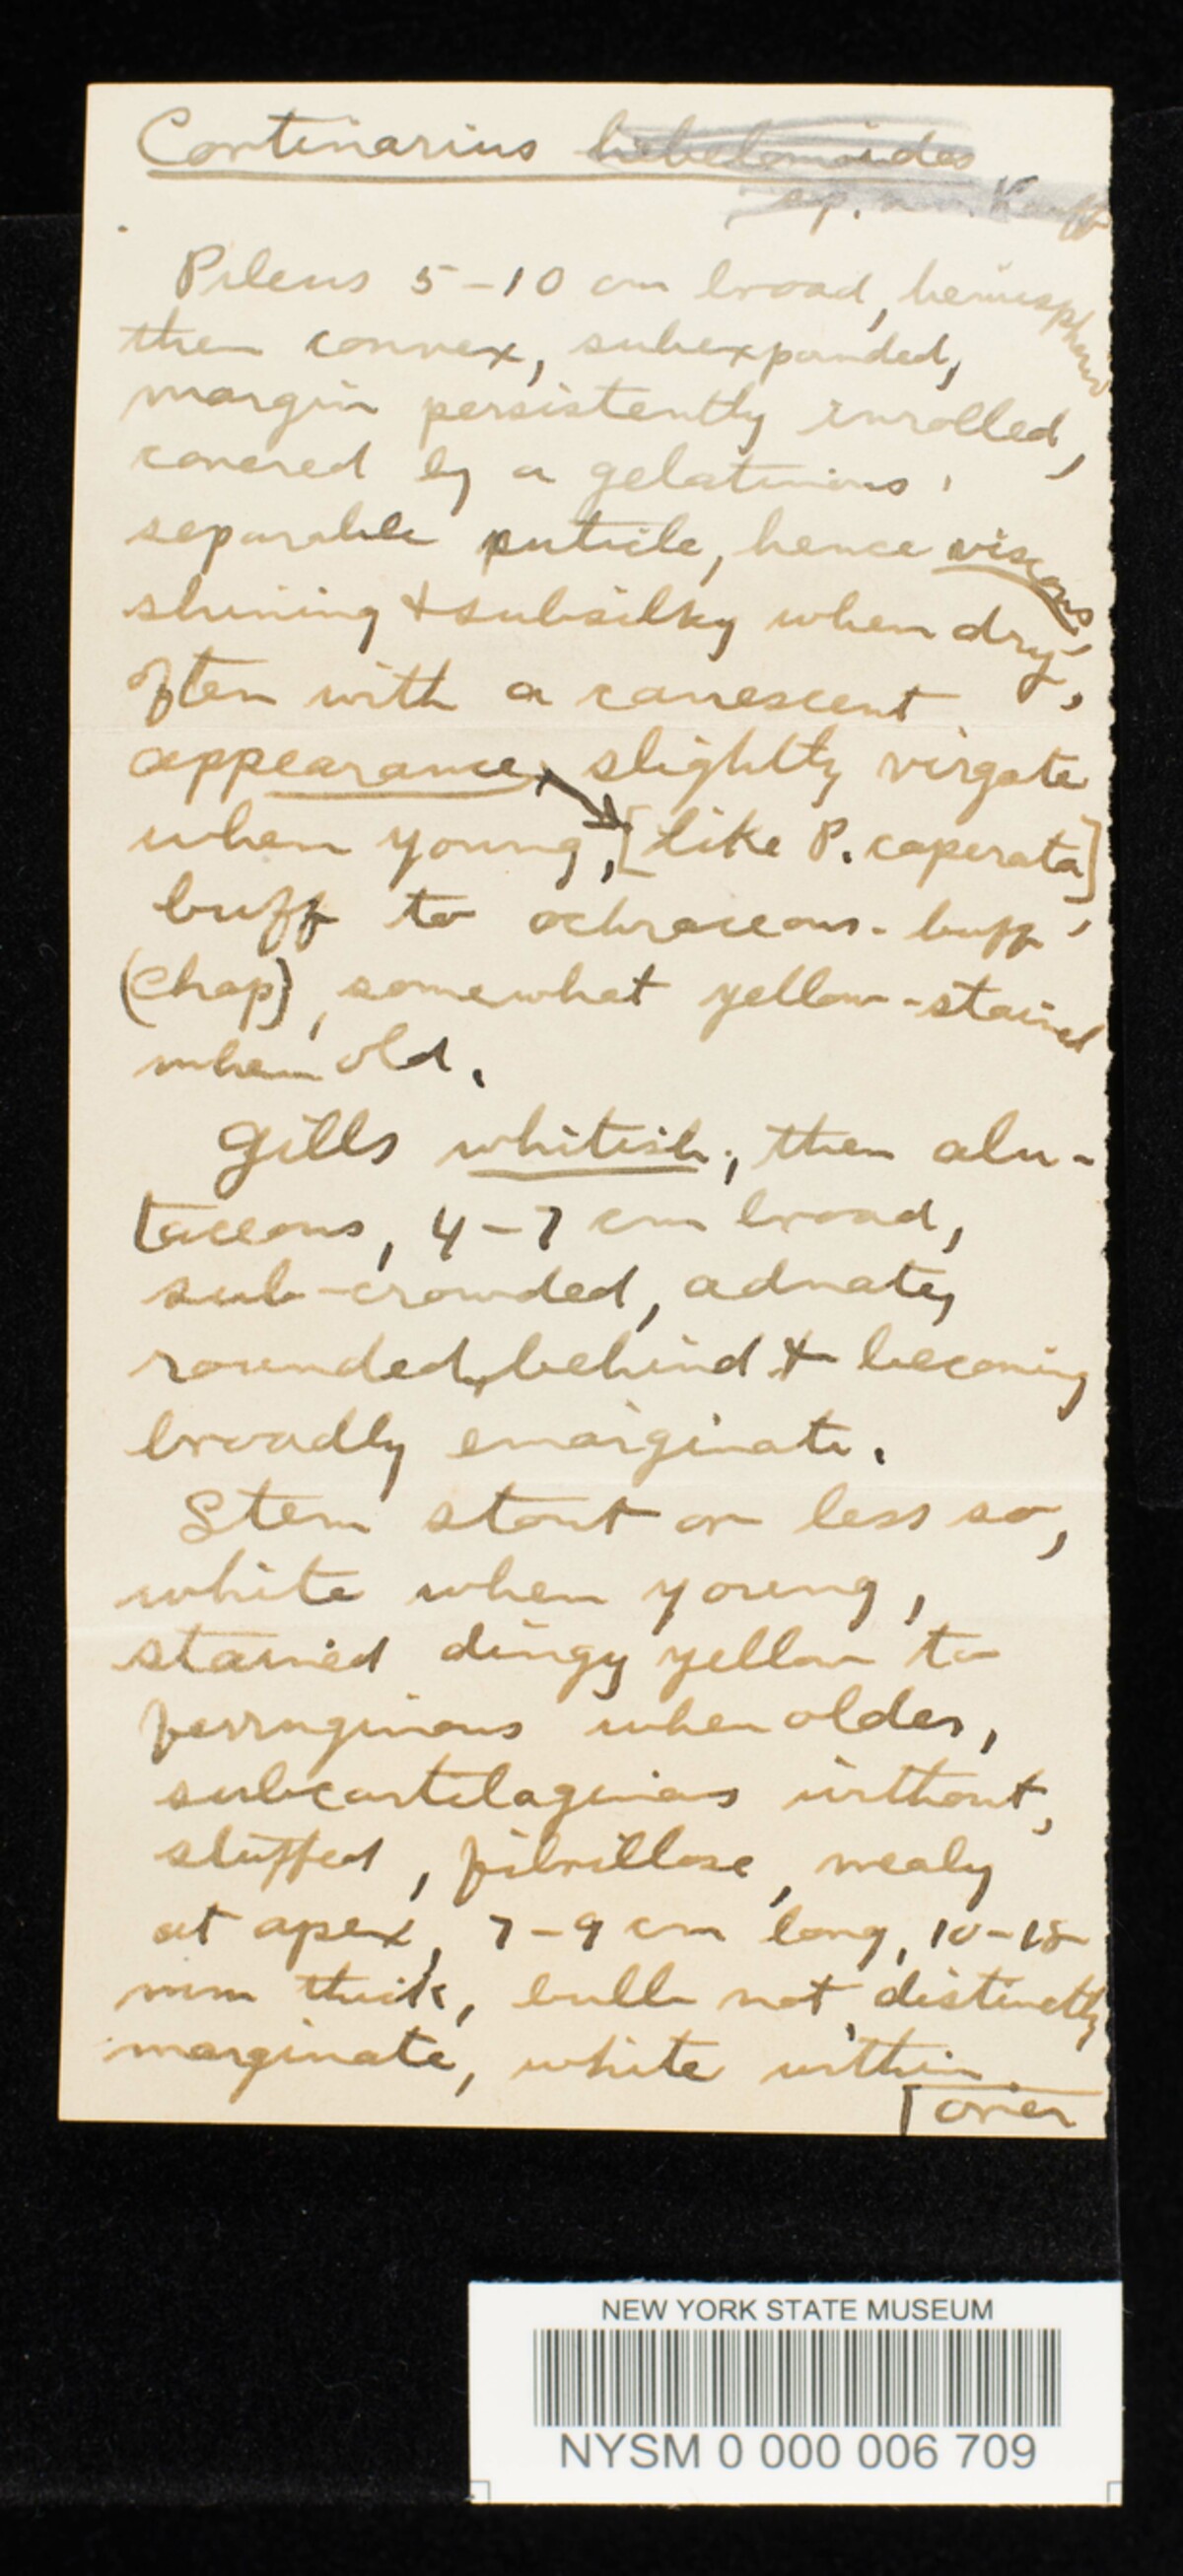 Cortinarius hebelomoides
sp. nov. Kauff
Pileus 5-10 cm broad, hemispheric
then convex, subexpanded,
margin persistently inrolled,
covered by a gelatinous,
separable cuticle, hence viscous,
shining & subsilky when dry,
often with a canescent
appearance, slightly virgate
when young, [like P. caperata]
buff to ochraceous-buff,
(Chap), somewhat yellow-stained
when old.
Gills whitish, then alu-
taceous, 4-7 cm broad,
sub-crowded, adnate,
rounded behind & becoming
broadly emarginate.
Stem stout or less so,
white when young,
stained dingy yellow to
ferruginous when older,
subcartilaginous without,
stuffed, fibrillose, mealy
at apex, 7-9 cm long, 10-18
mm thick, bulb not distinctly
marginate, white within.
over
NEW YORK STATE MUSEUM
NYSM 0 000 006 709